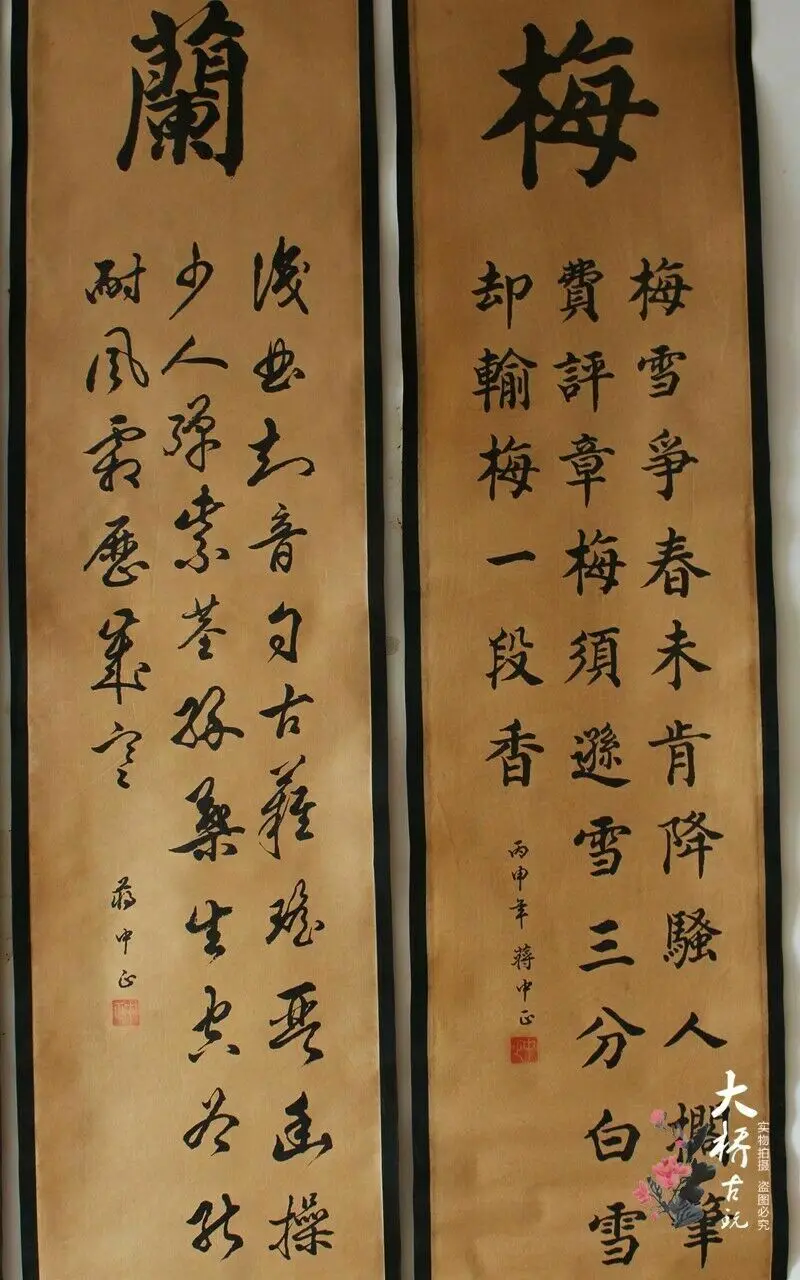 梅
梅雪爭春未肯降騷人擱筆
費評章梅須遜雪三分白雪
却輸梅一段香
丙申年 蔣中正
蘭
曲知音自古難瑤琴幽操
少人彈紫莖綠葉生空谷能
耐風霜歷歲寒
蔣中正
大桥古玩
实物拍摄 盗图必究